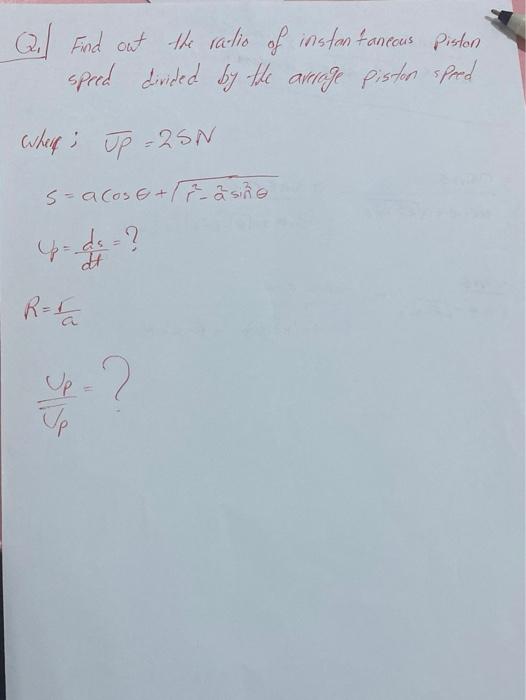 Q.1 Find out the ratio of instantaneous Piston
speed divided by the average piston speed
where; U̅p = 2SN
S = a cos θ + √(r² - a² sin² θ)
Up = ds/dt = ?
R = r/a
Up/U̅p = ?